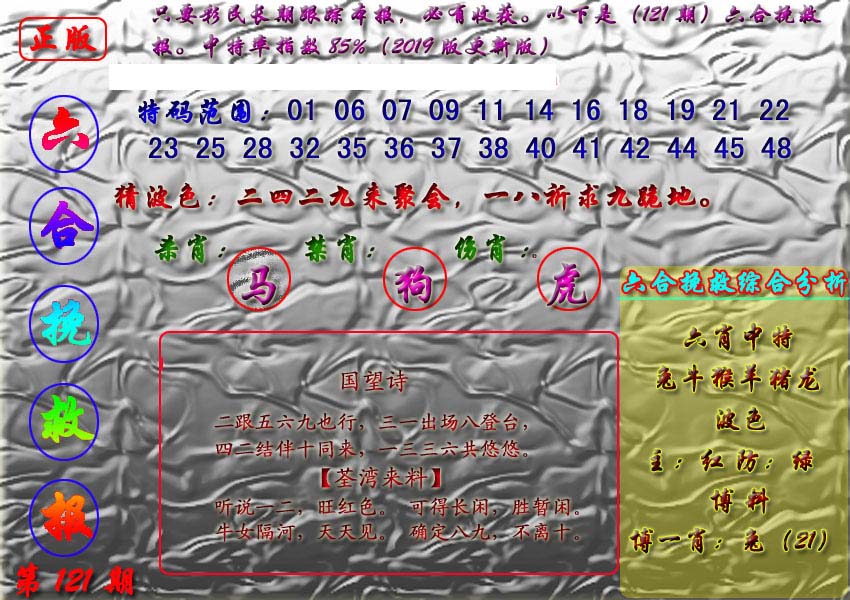 正版
只要彩民长期跟踪本报，必有收获。以下是（121期）六合挽救
报。中特率指数85%（2019版更新版）
六
合
挽
救
报
第121期
特码范围：01 06 07 09 11 14 16 18 19 21 22
23 25 28 32 35 36 37 38 40 41 42 44 45 48
猜波色：二四二九来聚会，一八祈求九跪地。
杀肖： 禁肖： 伤肖：。
马 狗 虎
国望诗
二跟五六九也行，三一出场八登台，
四二结伴十同来，一三三六共悠悠。
【荃湾来料】
听说一二，旺红色。 可得长闲，胜暂闲。
牛女隔河，天天见。 确定八九，不离十。
六合挽救综合分析
六肖中特
兔牛猴羊猪龙
波色
主：红防：绿
博料
博一肖：兔（21）